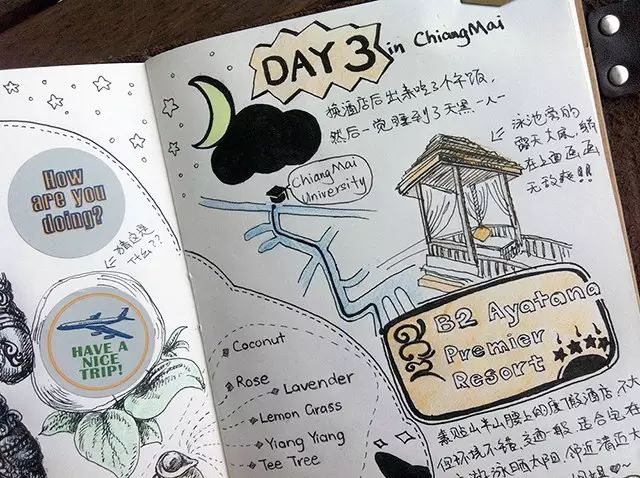 How
are you
doing?
猜这是
什么??
HAVE A
NICE
TRIP!
DAY 3 in ChiangMai
换酒店后出来吃了个午饭,
然后一觉睡到了天黑一人一
泳池旁的
露天大床,躺
在上面画画
无敌爽!!
ChiangMai
University
B2 Ayatana
Premier
Resort
Coconut
Rose
Lavender
Lemon Grass
Yiang Yiang
Tee Tree
素贴山半山腰上的度假酒店,不大
但环境不错,交通一般,适合包车
游泳晒太阳,邻近清迈大